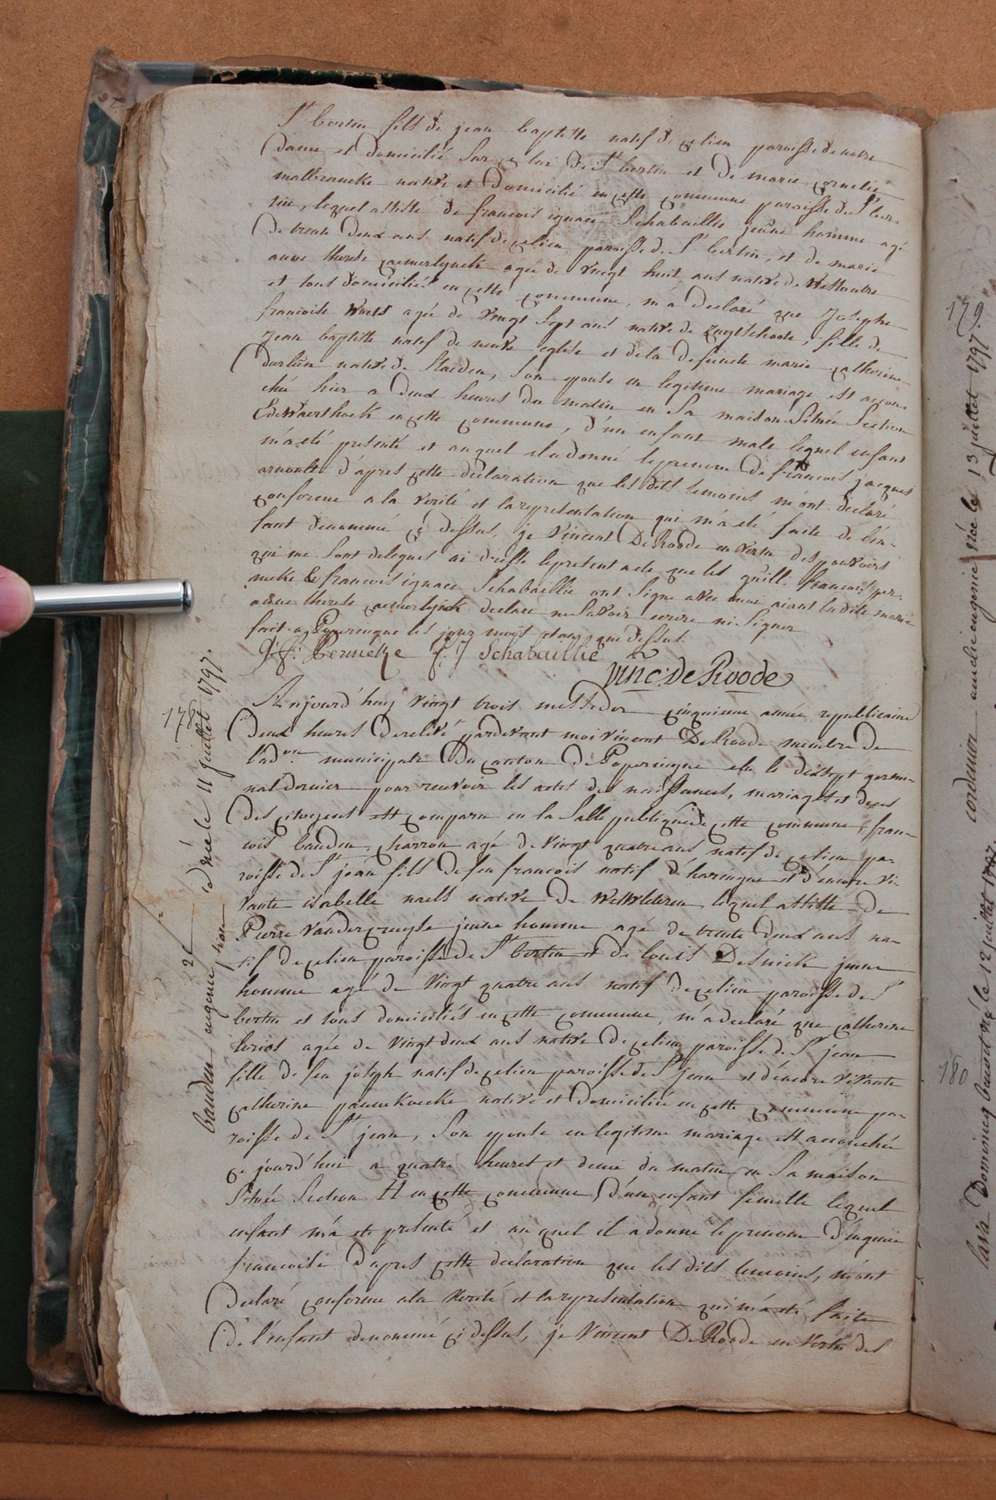 St bertin fils de jean baptiste natif de ce lieu paroisse de notre
dame et domicilié sur ce lui de St bertin et de marie cornelie
malbrancke native et domicilié en cette commune paroisse de St ber-
tin, lequel assisté de francois ignace Schabaillie jeune homme agé
de trente deux ans natif de ce lieu paroisse de St bertin, et de marie
anne therese caemerlynck agée de vingt huit ans native de Westoutre
et tous domiciliés en cette commune, m'a declaré que Josephe
francoise Worts agée de vingt sept ans native de zuytschoote, fille de
Jean baptiste natif de neuve eglise et de la defuncte marie catherine
native de Staeden, son epouse en legitime mariage est accou-
chée hier a deux heures du matin en sa maison Située Section
en cette commune, d'un enfant male lequel enfant
m'a eté presenté et auquel il a donné le prenom de francois jacques
arnould d'apres cette declaration que les dits temoins m'ont declaré
conforme a la verité et la representation qui m'a eté faite de l'en-
fant denommé ci dessus, je Vincent De Roode en vertu des pouvoirs
qui me sont delegués ai dressé le present acte que les
et francois ignace Schabaillie ont Signé avec moi aiant la dite marie
anne therese caemerlynck declaré ne savoir ecrire ni Signer
fait a Poperingue les jour mois et an que dessus
F: J Schabaillie
Vinc: De Roode
178
Aujourd'huy vingt trois messidor cinquieme année republicaine
deux heures de relevé pardevant moi vincent De Roode membre de
l'adon municipale du canton de Poperingue elu le dixsept germi-
nal dernier pour recevoir les actes des naissances, mariages et deces
des citoyens est comparu en la Salle publique de cette commune, fran-
cois bauden charron agé de vingt quatre ans natif de ce lieu pa-
roisse de St jean fils de feu francois natif d'haringue et d'encore vi-
vante isabelle naels native de Westvleteren, lequel assisté de
Pierre Vandercruysse jeune homme agé de trente deux ans na-
tif de ce lieu paroisse de St bertin et de louis Desnick jeune
homme agé de vingt quatre ans natif de ce lieu paroisse de St
bertin et tous domiciliés en cette commune, m'a declaré que catherine
agée de vingt deux ans native de ce lieu paroisse de St jean
fille de feu joseph natif de ce lieu paroisse de St jean et d'encore vivante
catherine pannekoecke native et domiciliée en cette commune pa-
roisse de St jean, son epouse en legitime mariage est accouchée
ce jourd'hui a quatre heures et demie du matin en Sa maison
Située Section H en cette commune, d'un enfant femelle lequel
enfant m'a eté presenté et auquel il a donné le prenom d'eugenie
francoise d'apres cette declaration que les dits temoins, m'ont
declaré conforme a la verité et la representation qui m'a eté faite
de l'enfant denommé ci dessus, je Vincent De Roode en vertu des
bauden eugenie fran
ce née le 11 juillet 1797.
179.
cordenier amelie eugenie née le 13 juillet 1797
180
né le 12 juillet 1797